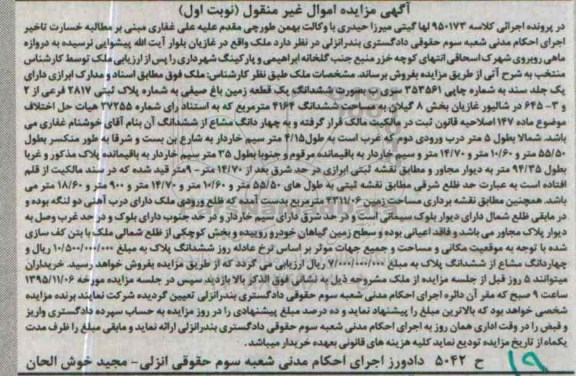 آگهی مزایده اموال غیر منقول (نوبت اول)
در پرونده اجرائی کلاسه ۹۵۰۱۷۳ لها گیتی میرزا حیدری با وکالت بهمن طورچی مقدم علیه علی غفاری مبنی بر مطالبه خسارت تاخیر
اجرای احکام مدنی شعبه سوم حقوقی دادگستری بندرانزلی در نظر دارد ملک واقع در غازیان بلوار آیت الله پیشوایی نرسیده به دروازه
ماهی روبروی شهرک اسحاقی انتهای کوچه خزر منبع جنب گلخانه ابراهیمی و پارکینگ شهرداری را پس از ارزیابی ملک توسط کارشناس
منتخب به شرح آتی از طریق مزایده بفروش برساند. مشخصات ملک طبق نظر کارشناس: ملک فوق مطابق اسناد و مدارک ابرازی دارای
یک جلد سند به شماره چاپی ۳۵۳۵۶۱ سری ب بصورت ششدانگ یک قطعه زمین باغ صیفی به شماره پلاک ثبتی ۲۸۱۷ فرعی از ۲
و ۳- ۶۴۵ در شالیور غازیان بخش ۸ گیلان به مساحت ششدانگ ۴۱۶۴ مترمربع که به استناد رأی شماره ۳۷۲۵۵ هیات حل اختلاف
موضوع ماده ۱۴۷ اصلاحیه قانون ثبت در مالکیت مالک قرار گرفته و به چهار دانگ مشاع از ششدانگ آن بنام آقای خوشنام غفاری می
باشد. شمالا بطول ۵ متر درب ورودی دوم که غرب است به طول ۴/۱۵ متر سیم خاردار به شارع بن بست و شرقا به طور منکسر بطول
۵۵/۵۰ متر و ۱۰/۶۰ متر و ۱۴/۷۰ متر سیم خاردار به باقیمانده مرقوم و جنوبا بطول ۳۵ متر سیم خاردار به باقیمانده پلاک مذکور و غربا
بطول ۹۴/۳۵ متر به دیوار مجاور و مطابق نقشه ثبتی ابرازی در حد شرق بعد از ۱۴/۷۰ متر ۹۰۰ متر قید شده که در سند مالکیت از قلم
افتاده است به عبارت حد ظلع شرقی مطابق نقشه ثبتی به طول های ۵۵/۵۰ متر و ۱۰/۶۰ متر و ۱۴/۷۰ متر و ۹۰۰ متر و ۱۸/۶۰ متر می
باشد. همچنین مطابق نقشه برداری مساحت زمین مترمربع بدست آمده که ظلع ورودی ملک دارای درب آهنی دو لنگه بوده و
در مابقی ظلع شمال دارای دیوار بلوک سیمانی است و در حد شرق دارای سیم خاردار و در حد جنوب دارای بلوک و در حد غرب وصل به
دیوار پلاک مجاور می باشد و فاقد اعیانی بوده و سطح زمین گیاهان خودرو روییده و بخش کوچکی از ظلع شمالی ملک با بتن کف سازی
شده با توجه به موقعیت مکانی و مساحت و جمیع جهات موثر بر اساس نرخ عادله روز ششدانگ پلاک به مبلغ ۱۰/۵۰۰/۰۰۰/۰۰۰ ریال و
چهاردانگ مشاع از ششدانگ پلاک به مبلغ ۷/۰۰۰/۰۰۰/۰۰۰ ریال ارزیابی می گردد که از طریق مزایده بفروش خواهد رسید. خریداران
میتوانند ۵ روز قبل از جلسه مزایده از ملک مشروحه ذیل به نشانی فوق الذکر بالا بازدید سپس در جلسه مزایده مورخه ۱۳۹۵/۱۱/۰۶
ساعت ۹ صبح که مقر آن دائره اجرای احکام مدنی شعبه سوم حقوقی دادگستری بندرانزلی تعیین گردیده شرکت نمایند برنده مزایده
شخصی خواهد بود که بالاترین مبلغ را پیشنهاد نماید و ده درصد مبلغ پیشنهادی را در روز مزایده به حساب سپرده دادگستری واریز
و قبض را در وقت اداری همان روز به اجرای احکام مدنی شعبه سوم حقوقی دادگستری بندرانزلی ارائه نماید و مابقی مبلغ را ظرف مدت
یکماه از تاریخ مزایده تودیع نماید کلیه هزینه های قانونی بعهده خریدار میباشد.
ح ۵۰۴۲ دادورز اجرای احکام مدنی شعبه سوم حقوقی انزلی- مجید خوش الحان
۱۹